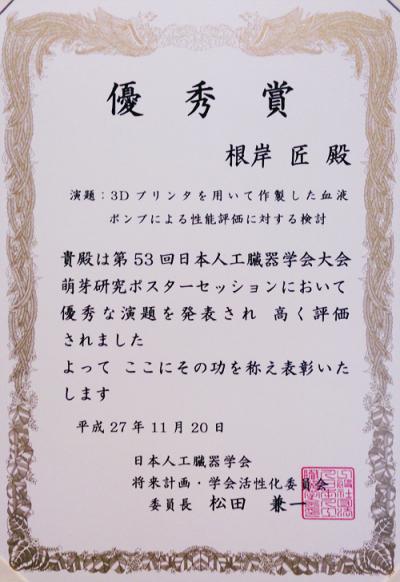 優秀賞
根岸 匠 殿
演題：3Dプリンタを用いて作製した血液
ポンプによる性能評価に対する検討
貴殿は第53回日本人工臓器学会大会
萌芽研究ポスターセッションにおいて
優秀な演題を発表され 高く評価
されました
よって ここにその功を称え表彰いた
します
平成27年11月20日
日本人工臓器学会
将来計画・学会活性化委員会
委員長 松田 兼一